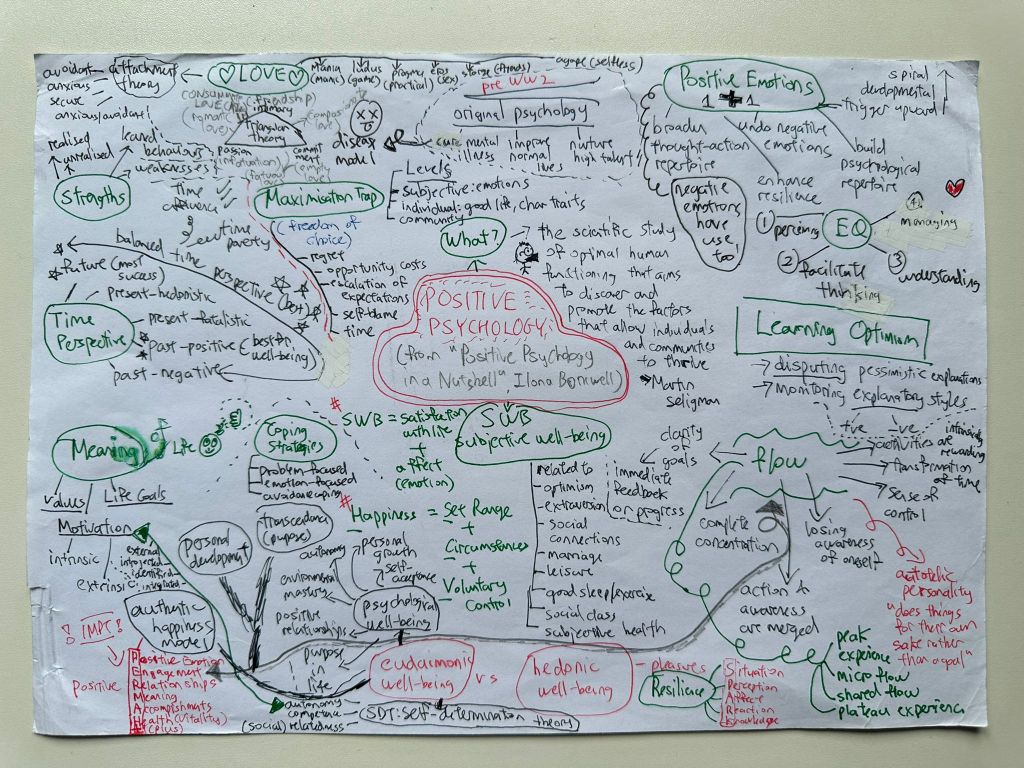 avoidant
anxious
secure
anxious/avoidant
attachment
theory
LOVE
Mania
(manic)
ludus
(game)
pragma
(practical)
eros
(sex)
storge
agape (selfless)
(friendship)
intimacy
(romantic
love)
Triangular
theory
passion
commit
ment
(empty
love)
pre WW2
original psychology
cure mental
illness
improve
normal
lives
nurture
high talent
disease
model
Levels
subjective: emotions
individual: good life, char traits
community
realised
unrealised
learned
behaviours
weaknesses
Strengths
time
Maximisation Trap
(freedom of
choice)
regret
opportunity costs
escalation of
expectations
self-blame
time
time
poverty
balanced
time perspective (best)
future (most
success)
present-hedonistic
Time
Perspective
present-fatalistic
past-positive (best for
well-being)
past-negative
What?
the scientific study
of optimal human
functioning that aims
to discover and
promote the factors
that allow individuals
and communities
to thrive
Martin
Seligman
POSITIVE
PSYCHOLOGY
(from "Positive Psychology
in a Nutshell" Ilona Boniwell)
Positive Emotions
1 + 1
broaden
thought-action
repertoire
undo negative
emotions
enhance
resilience
build
psychological
repertoire
spiral
devlopmental
trigger upward
negative
emotions
have
use
too!
EQ
① perceiving
② facilitate
thinking
③ understanding
④ managing
Learning Optimism
disputing pessimistic explanations
monitoring explanatory styles
+ve -ve
Meaning of Life
values
Life Goals
Motivation
intrinsic
extrinsic:
external
introjected
identified
integrated
Coping
Strategies
problem-focused
emotion-focused
avoidance coping
# SWB = satisfaction
with life
+
affect
(emotion)
# Happiness = Set Range
+
Circumstances
+
Voluntary
control
SWB
subjective well-being
related to
optimism
extraversion
social
connections
marriage
leisure
good sleep/exercise
social class
subjective health
flow
clarity
of
goals
immediate
feedback
or progress
complete
concentration
action &
awareness
are merged
losing
awareness
of oneself
sense of
control
transformation
of time
activities are
intrinsically
rewarding
autotelic
personality
"does things
for their own
sake rather
than a goal"
peak
experience
micro flow
shared flow
plateau experience
personal
development
transcendence
(pupose)
psychological
well-being
autonomy
personal
growth
self-
acceptance
environmental
mastery
positive
relationships
purpose
in
life
authentic
happiness
model
! IMPT !
positive
Positive Emotion
Engagement
Relationships
Meaning
Accomplishments
Health (Vitality)
(plus)
eudaimonic
well-being
vs
hedonic
well-being
- pleasures
autonomy
competence
(social) relatedness
SDT: self-determination theory
Resilience
Situation
Perception
Affect
Reaction
Knowledge